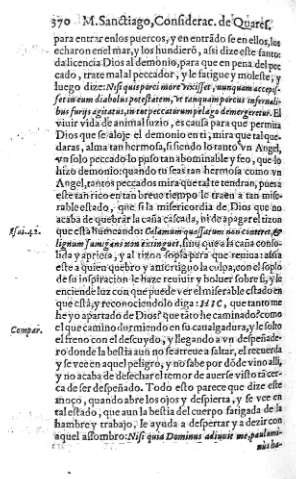 370 M. Sanctiago, Considerac. de Quares.
para entrar en los puercos, y en entrãdo se en ellos, los
echaron en el mar, y los hundierõ, assi dize este sancto
da licencia Dios al demonio, para que en pena del pec
cado, trate mal al peccador, y le fatigue y moleste, y
luego dize: Nisi quis porci more vixisset, nunquam accepis
set in eum diabolus potestatem, vt tanquam porcus infernali
bus furijs agitatus, in tot peccatorum pelago demergeretur. El
viuir vida de animal suzio, es causa para que permita
Dios que se aloje el demonio en ti, mira que tal que-
daras, alma tan hermosa, si siendo lo tanto vn Angel,
vn solo peccado lo puso tan abominable y feo, que lo
hizo demonio: quando tu seas tan hermosa como vn
Angel, tantos peccados mira que tal te tendran, puesa
este tan rico en tan breue tiempo le traen a tan mise-
rable estado, que si la misericordia de Dios que no
acaba de quebrar la caña cascada, ni de apagar el tizon
Esai. 42. que esta humeando: Calamum quassatum non conteret, &
lignum fumigans non extinguet, sino que a la caña conso-
lida y aprieta, y al tizon sopla para que reuiua: assi a
este a quien quebro y amortiguo la culpa, con el soplo
de su inspiracion le haze reuiuir y boluer sobre si, y le
enciende luz con que puede ver el miserable estado en
que està, y reconociendolo diga: HIC, que tanto me
he yo apartado de Dios? que tãto he caminado? como
Compar. el que camino durmiendo en su caualgadura, y le solto
el freno con el descuydo, y llegando a vn despeñade-
ro donde la bestia aun no se atreue a saltar, el recuerda
y se vee en aquel peligro, y no sabe por dõde vino alli,
y no acaba de desechar el temor de auerse visto tã cer-
ca de ser despeñado. Todo esto parece que dize este
moço, quando abre los ojos y despierta, y se vee en
tal estado, que aun la bestia del cuerpo fatigada de la
hambre y trabajo, le ayuda a despertar y a dezir con
aquel assombro: Nisi quia Dominus adiuuit me, paulomi-
nus ha-